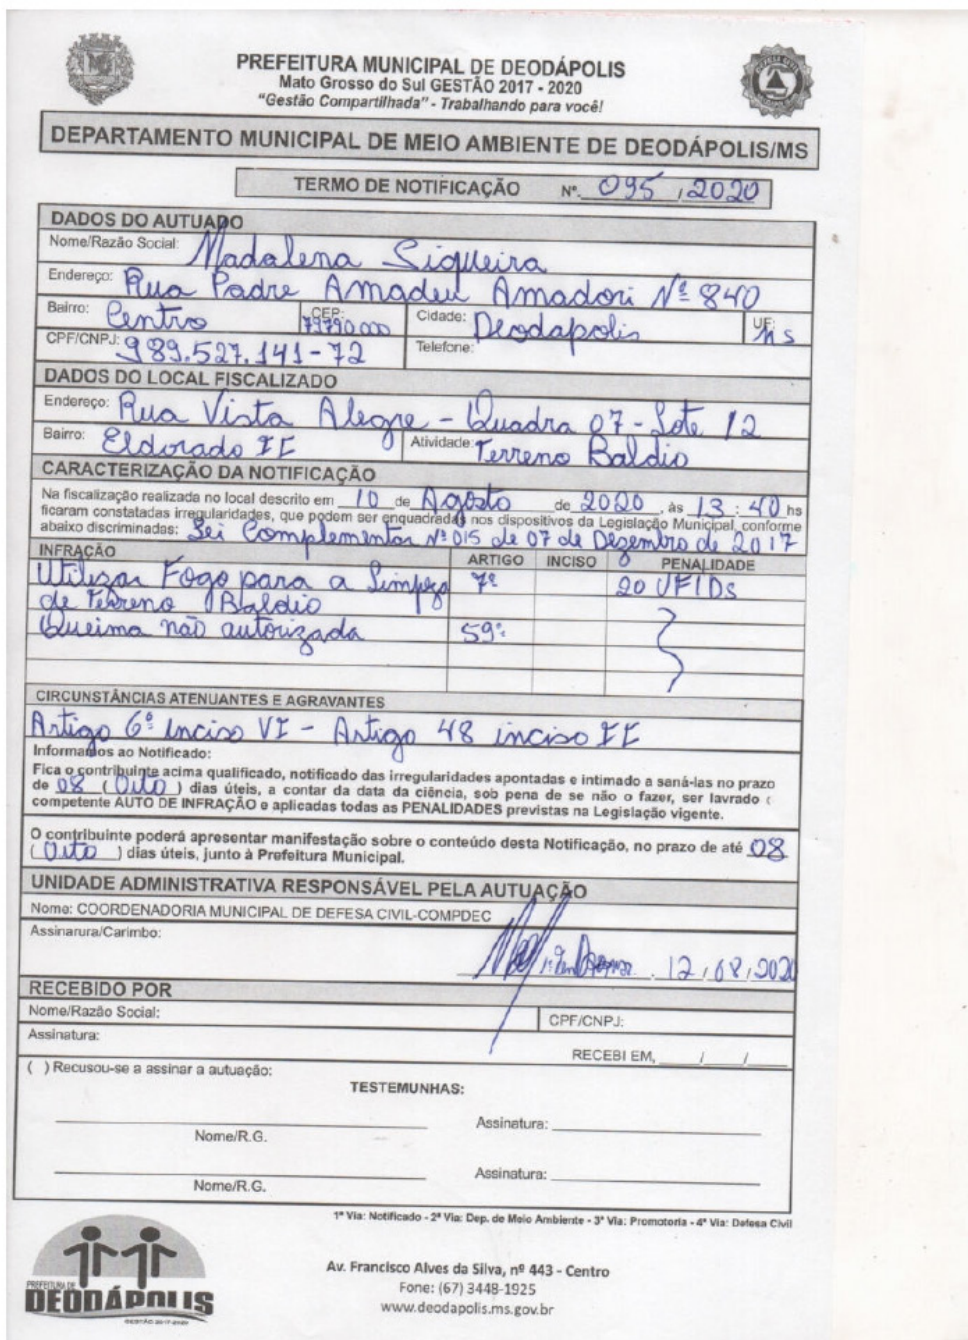 PREFEITURA MUNICIPAL DE DEODÁPOLIS
Mato Grosso do Sul GESTÃO 2017 - 2020
"Gestão Compartilhada" - Trabalhando para você!
DEPARTAMENTO MUNICIPAL DE MEIO AMBIENTE DE DEODÁPOLIS/MS
TERMO DE NOTIFICAÇÃO Nº. 095 / 2020
DADOS DO AUTUADO
Nome/Razão Social: Madalena Siqueira
Endereço: Rua Padre Amadeu Amadori Nº 840
Bairro: Centro CEP: 79790000 Cidade: Deodapolis UF: MS
CPF/CNPJ: 989.527.141-72 Telefone:
DADOS DO LOCAL FISCALIZADO
Endereço: Rua Vista Alegre - Quadra 07 - Lote 12
Bairro: Eldorado II Atividade: Terreno Baldio
CARACTERIZAÇÃO DA NOTIFICAÇÃO
Na fiscalização realizada no local descrito em 10 de Agosto de 2020, às 13:40 hs
ficaram constatadas irregularidades, que podem ser enquadradas nos dispositivos da Legislação Municipal, conforme
abaixo discriminadas: Lei Complementar Nº 015 de 07 de Dezembro de 2017
INFRAÇÃO ARTIGO INCISO PENALIDADE
Utilizar Fogo para a Limpeza 7º 20 UFIDs
de Terreno Baldio
Queima não autorizada 59º
CIRCUNSTÂNCIAS ATENUANTES E AGRAVANTES
Artigo 6º inciso VI - Artigo 48 inciso II
Informamos ao Notificado:
Fica o contribuinte acima qualificado, notificado das irregularidades apontadas e intimado a saná-las no prazo
de 08 (Oito) dias úteis, a contar da data da ciência, sob pena de se não o fazer, ser lavrado
competente AUTO DE INFRAÇÃO e aplicadas todas as PENALIDADES previstas na Legislação vigente.
O contribuinte poderá apresentar manifestação sobre o conteúdo desta Notificação, no prazo de até 08
(Oito) dias úteis, junto à Prefeitura Municipal.
UNIDADE ADMINISTRATIVA RESPONSÁVEL PELA AUTUAÇÃO
Nome: COORDENADORIA MUNICIPAL DE DEFESA CIVIL-COMPDEC
Assinarura/Carimbo:
12/08/2020
RECEBIDO POR
Nome/Razão Social: CPF/CNPJ:
Assinatura:
RECEBI EM, ____/____/____
( ) Recusou-se a assinar a autuação:
TESTEMUNHAS:
Assinatura:
Nome/R.G.
Assinatura:
Nome/R.G.
1ª Via: Notificado - 2ª Via: Dep. de Meio Ambiente - 3ª Via: Promotoria - 4ª Via: Defesa Civil
PREFEITURA DE
DEODÁPOLIS
GESTÃO 2017-2020
Av. Francisco Alves da Silva, nº 443 - Centro
Fone: (67) 3448-1925
www.deodapolis.ms.gov.br